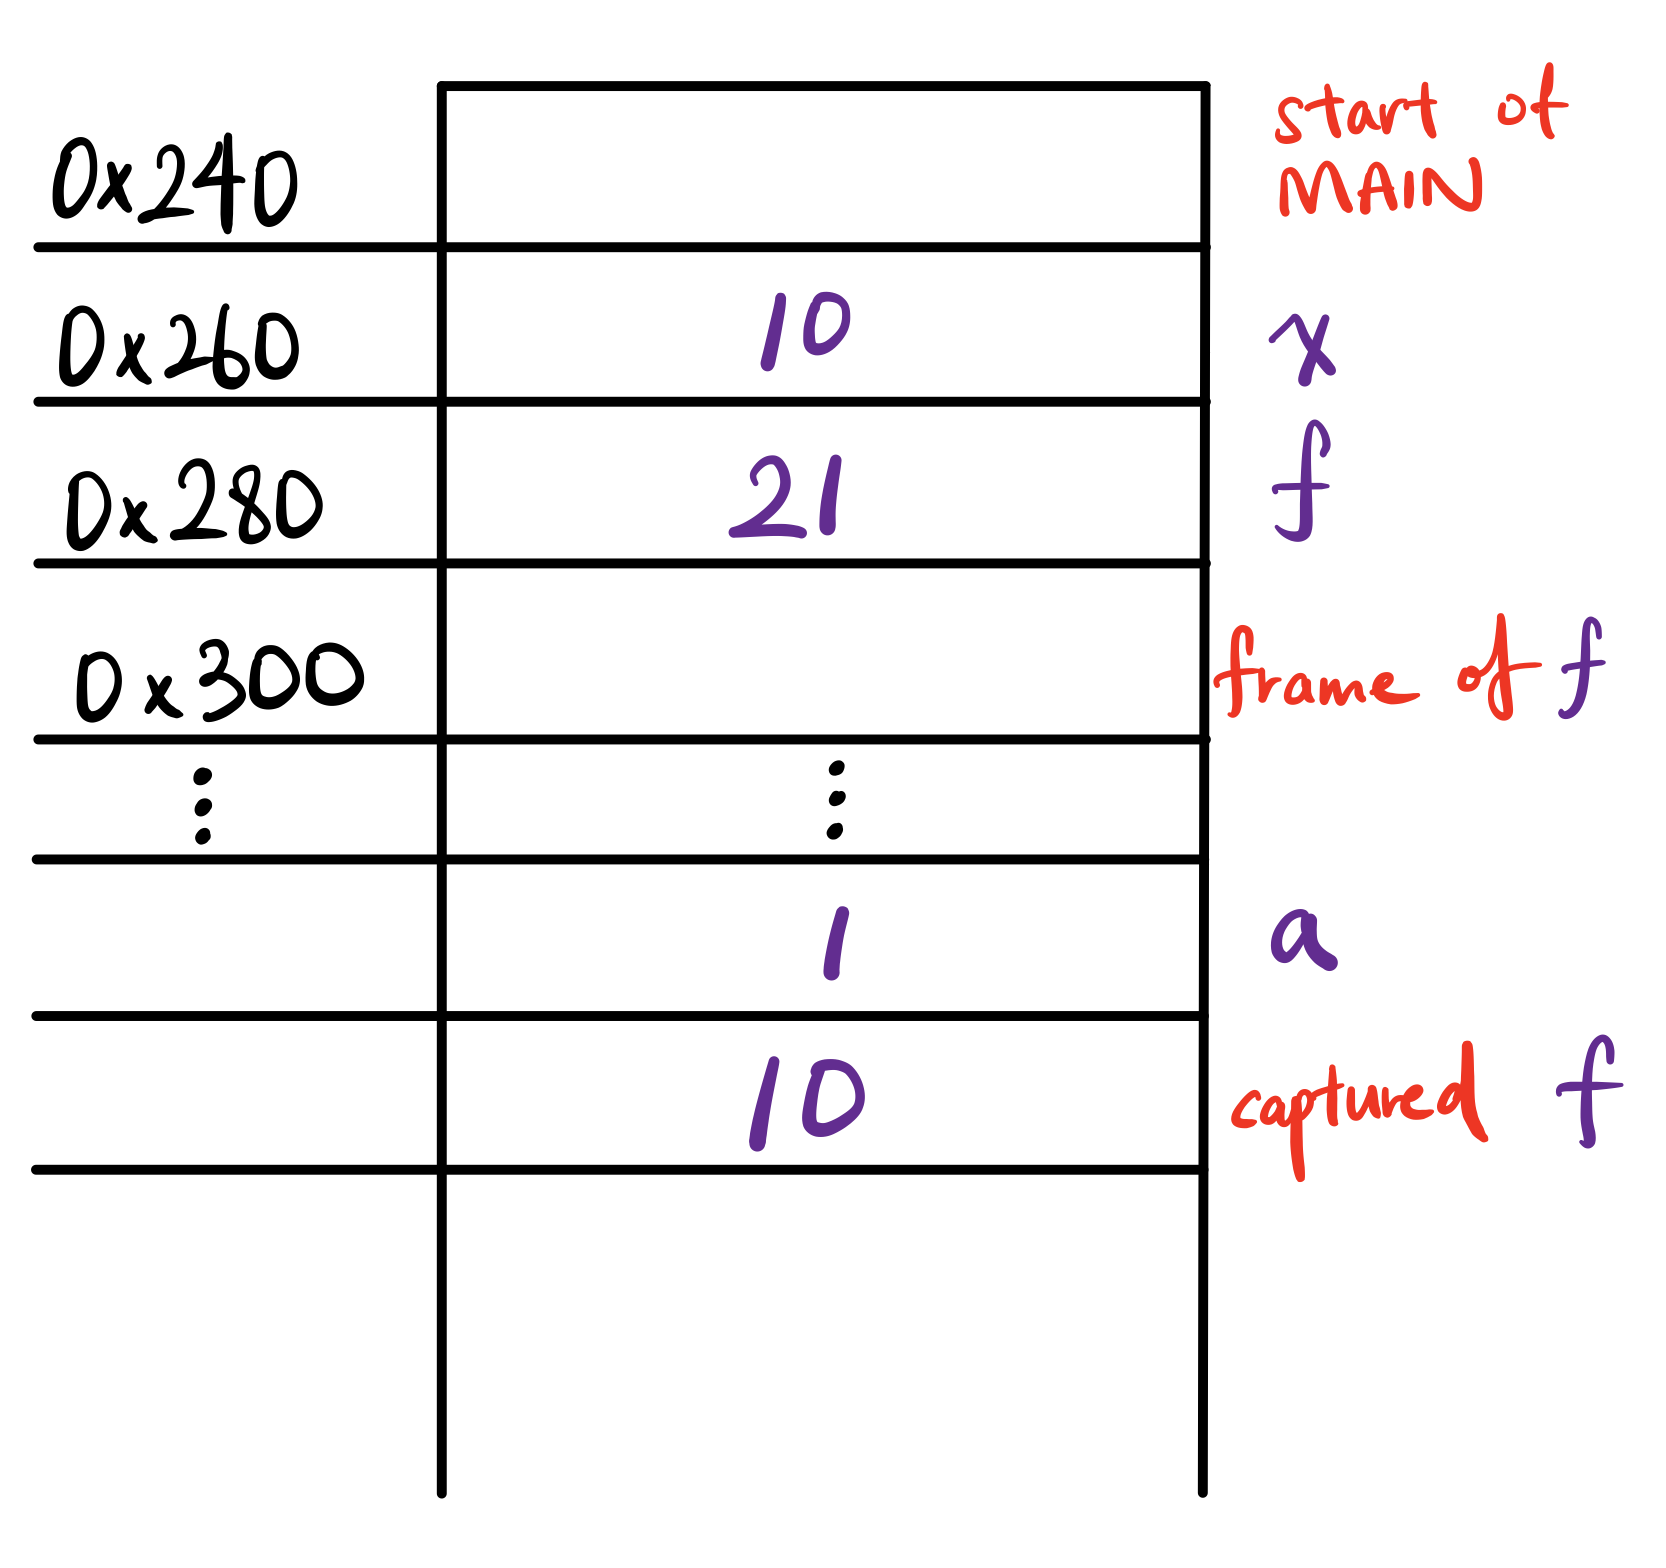 start of
MAIN
0x240
0x260 10 x
0x280 21 f
0x300 frame of f
⋮ ⋮
1 a
10 captured f